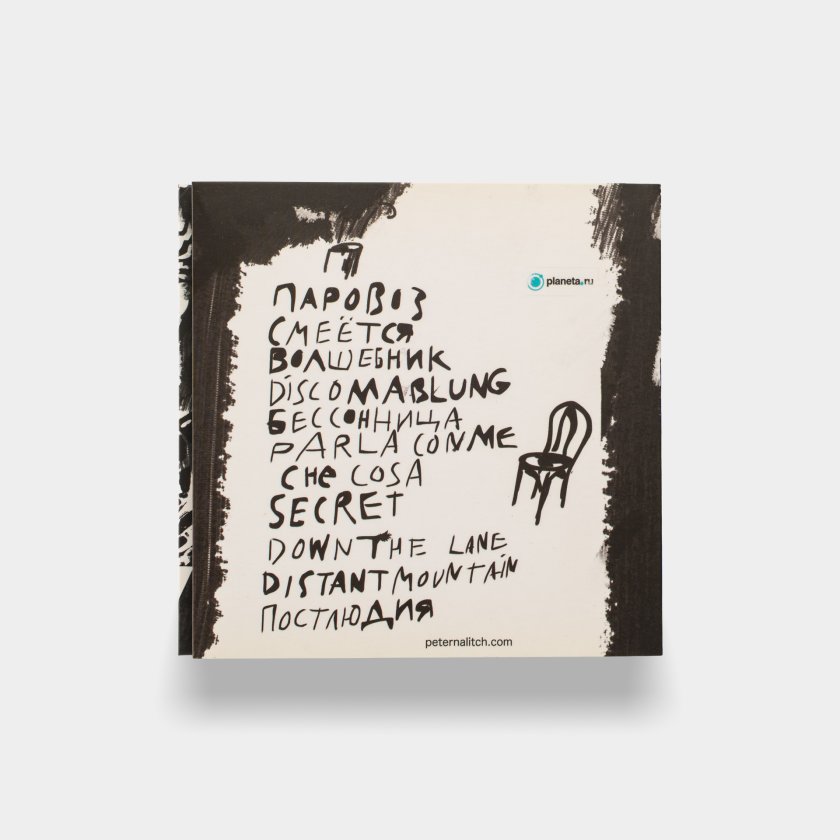 ПАРОВОЗ
planeta.ru
СМЕЁТСЯ
ВОЛШЕБНИК
DISCO MABLUNG
БЕССОННИЦА
PARLA CON ME
CHE COSA
SECRET
DOWN THE LANE
DISTANT MOUNTAIN
ПОСТЛЮДИЯ
peternalitch.com